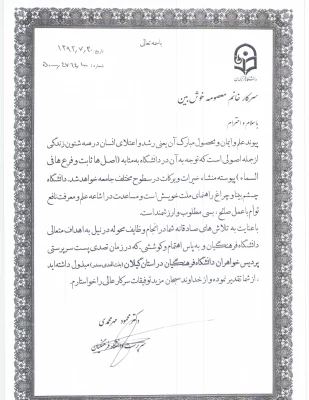 باسمه تعالی
تاریخ ۱۳۹۲/۷/۲۰
شماره
دانشگاه فرهنگیان
سرکار خانم معصومه خوش بین
با سلام و احترام
پیوند علم و ایمان و محصول مبارک آن یعنی رشد و اعتلای انسان در همه شئون زندگی
از جمله اصولی است که توجه به آن در دانشگاه به مثابه (اصلها ثابت و فرعها فی
السماء) پیوسته منشاء خیرات و برکات در سطوح مختلف جامعه خواهد شد. دانشگاه
چشم بینا و چراغ راهنمای ملت خویش است و مساعدت در اشاعه علم و معرفت نافع
توأم با عمل صالح، بسی مطلوب و ارزشمند است.
با عنایت به تلاش های صادقانه شما در انجام وظایف محوله در نیل به اهداف متعالی
دانشگاه فرهنگیان و به پاس اهتمام و کوششی که در زمان تصدی پست سرپرستی
پردیس خواهران دانشگاه فرهنگیان در استان گیلان مبذول داشته اید
، از شما تقدیر نموده و از خداوند سبحان مزید توفیقات سرکار عالی را خواستارم.
دکتر محمود مهرمحمدی
سرپرست دانشگاه فرهنگیان